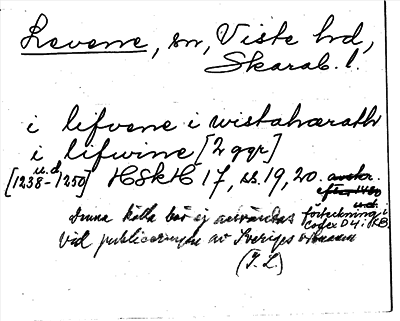 Levene, sn, Viste hd,
Skarab. l.
i lifvene i wistahærath
i lifwine [2 ggr]
u.d.
[1238-1250] HSkH 17, ss. 19, 20. avskr.
efter 1450
u.d.
Denna källa bör ej användas förteckning i
Codex D 4 i KB.
vid publiceringen av Sveriges ortnamn
(I.L.)